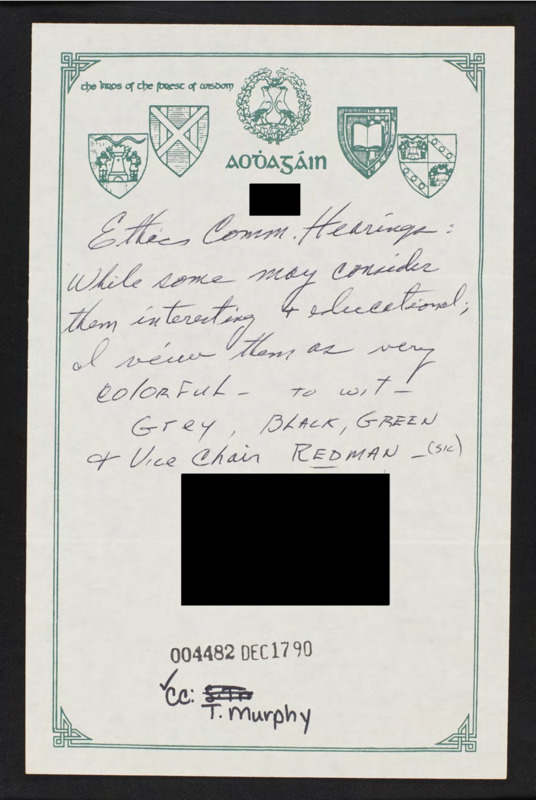 the birds of the forest of wisdom
AOḊAGÁIN
Ethics Comm. Hearings:
While some may consider
them interesting + educational;
I view them as very
COLORFUL - to wit -
Grey, BLACK, GREEN
& Vice Chair REDMAN - (sic)
004482 DEC1790
✓cc:
T. Murphy